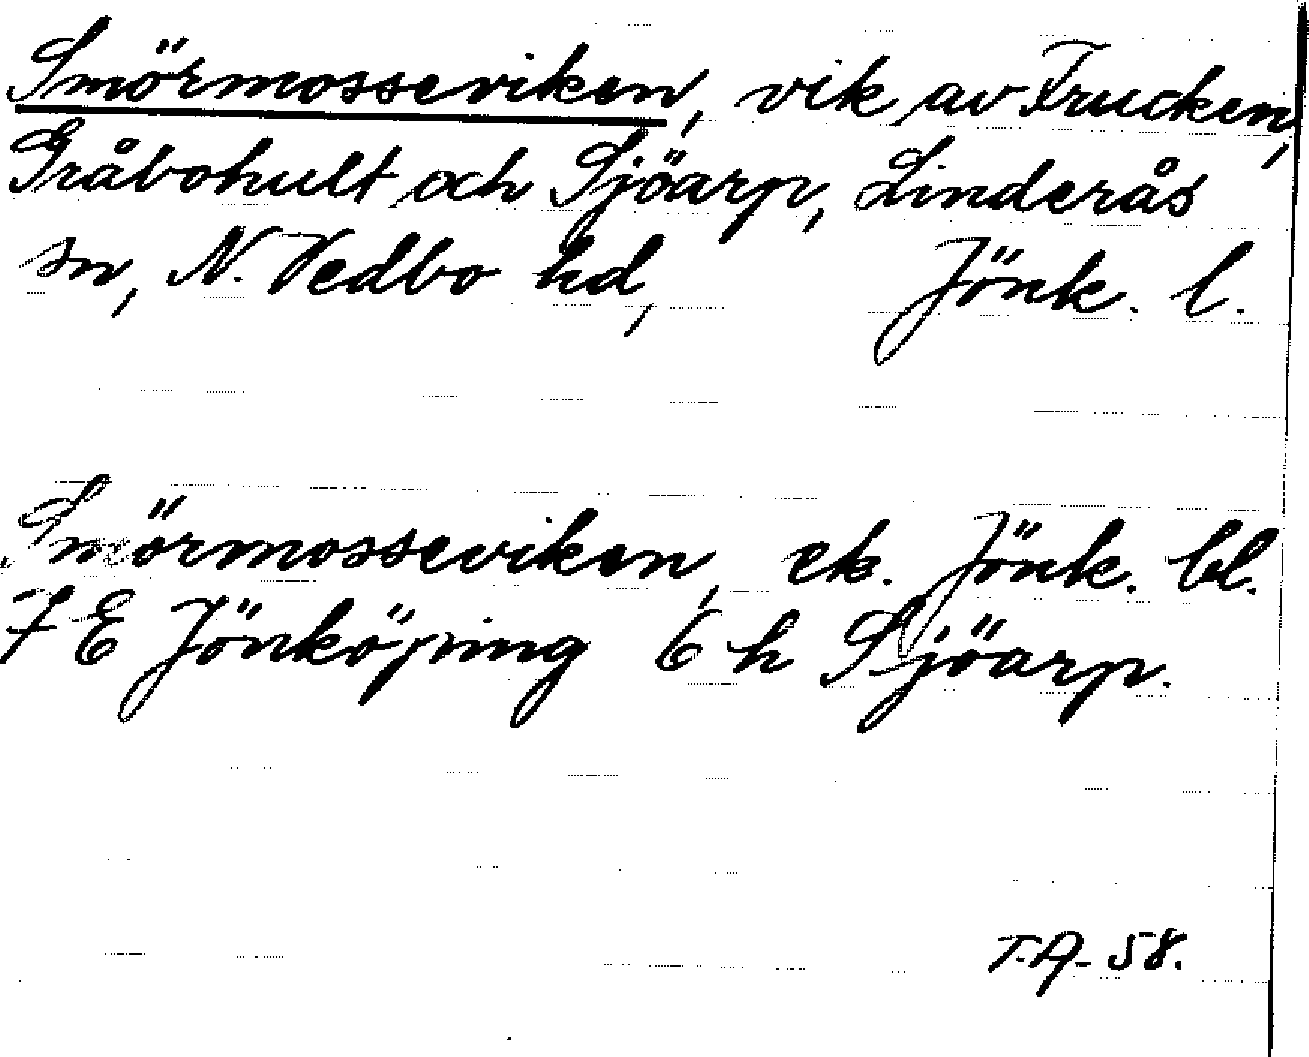 Smörmosseviken, vik av Frucken,
Gråbohult och Sjöarp, Linderås
sn, N. Vedbo hd, Jönk. l.
Smörmosseviken, ek. Jönk. bl.
7 E Jönköping 6 h Sjöarp.
T.A. 58.